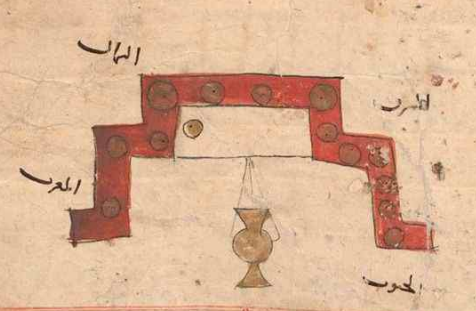 الشمال
المشرق
المغرب
الجنوب